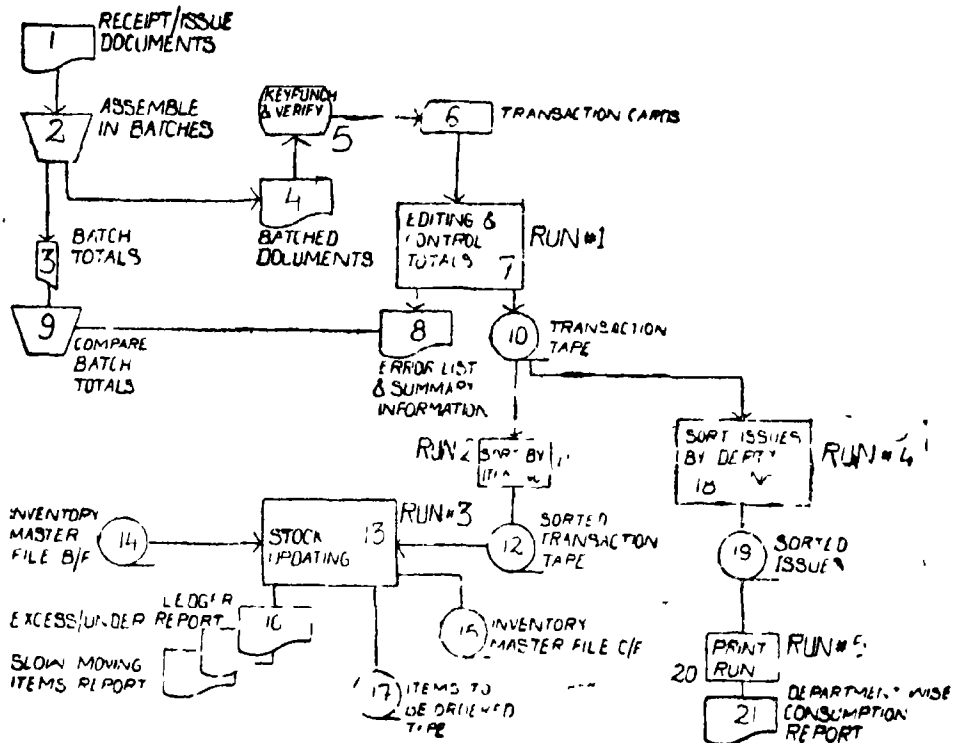 RECEIPT/ISSUE
DOCUMENTS
1
ASSEMBLE
IN BATCHES
2
KEYPUNCH
& VERIFY
5
6
TRANSACTION CARDS
4
BATCHED
DOCUMENTS
BATCH
TOTALS
3
EDITING &
CONTROL
TOTALS
7
RUN #1
9
COMPARE
BATCH
TOTALS
8
ERROR LIST
& SUMMARY
INFORMATION
10
TRANSACTION
TAPE
RUN 2
SORT BY
SORT ISSUES
BY DEPTT
18
RUN #4
INVENTORY
MASTER
FILE B/F
14
STOCK
UPDATING
13
RUN #3
12
SORTED
TRANSACTION
TAPE
19
SORTED
ISSUES
LEDGER
EXCESS/UNDER REPORT
16
SLOW MOVING
ITEMS REPORT
15
INVENTORY
MASTER FILE C/F
17
ITEMS TO
BE ORDERED
TAPE
PRINT
RUN
20
RUN #5
21
DEPARTMENT WISE
CONSUMPTION
REPORT